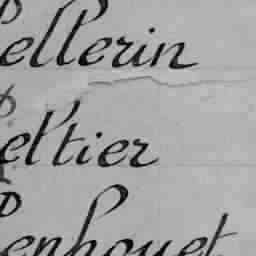 Pellerin
Peltier
Penhouet